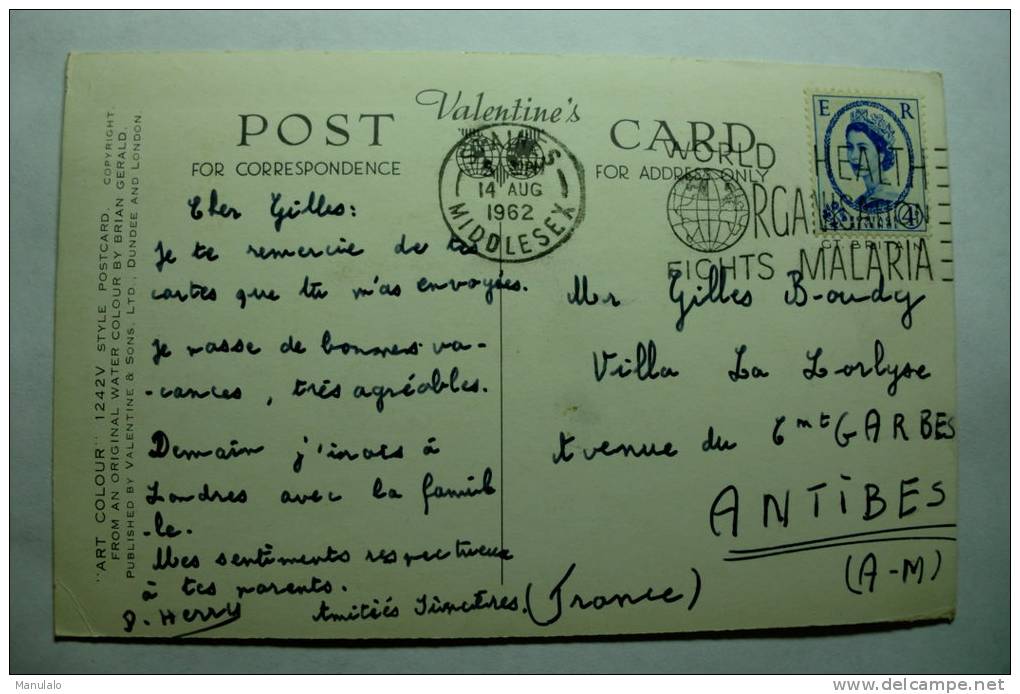 "ART COLOUR" 1242V STYLE POSTCARD. COPYRIGHT
FROM AN ORIGINAL WATER COLOUR BY BRIAN GERALD.
PUBLISHED BY VALENTINE & SONS. LTD., DUNDEE AND LONDON.
Valentine's
POST CARD
FOR CORRESPONDENCE
FOR ADDRESS ONLY
STAINES
14 AUG
1962
MIDDLESEX
WORLD HEALTH
ORGANISATION
FIGHTS MALARIA
E R
4D
GT. BRITAIN
Cher Gilles:
Je te remercie de tes
cartes que tu m'as envoyées.
Je passe de bonnes va-
-cances, très agréables.
Demain j'irais à
Londres avec la famil
-le.
Mes sentiments respectueux
à tes parents.
Amitiés sincères.
P. Herry
Mr Gilles Boudy
Villa La Lorlyse
Avenue du Cmt GARBES
ANTIBES
(A-M)
(France)
Manulalo
www.delcampe.net